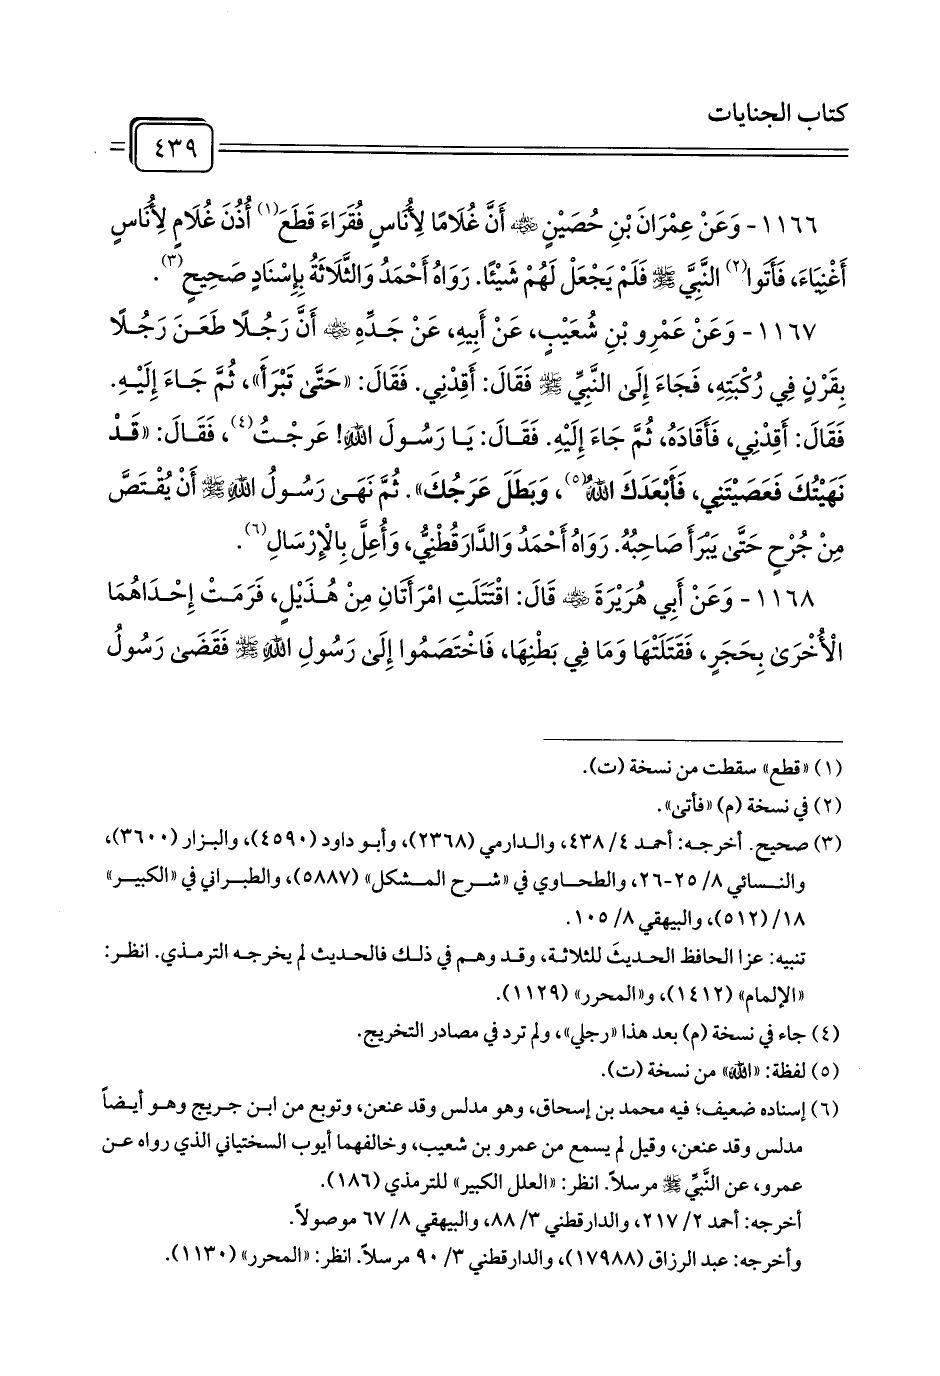 كتاب الجنايات
٤٣٩
١١٦٦- وَعَنْ عِمْرَانَ بْنِ حُصَيْنٍ ﵁ أَنَّ غُلَامًا لِأُنَاسٍ فُقَرَاءَ قَطَعَ(١) أُذُنَ غُلَامٍ لِأُنَاسٍ
أَغْنِيَاءَ، فَأَتَوا(٢) النَّبِيَّ ﷺ فَلَمْ يَجْعَلْ لَهُمْ شَيْئًا. رَوَاهُ أَحْمَدُ وَالثَّلَاثَةُ بِإِسْنَادٍ صَحِيحٍ(٣).
١١٦٧- وَعَنْ عَمْرِو بْنِ شُعَيْبٍ، عَنْ أَبِيهِ، عَنْ جَدِّهِ ﵁ أَنَّ رَجُلًا طَعَنَ رَجُلًا
بِقَرْنٍ فِي رُكْبَتِهِ، فَجَاءَ إِلَىٰ النَّبِيِّ ﷺ فَقَالَ: أَقِدْنِي. فَقَالَ: «حَتَّىٰ تَبْرَأَ»، ثُمَّ جَاءَ إِلَيْهِ.
فَقَالَ: أَقِدْنِي، فَأَقَادَهُ، ثُمَّ جَاءَ إِلَيْهِ. فَقَالَ: يَا رَسُولَ اللهِ! عَرِجْتُ(٤)، فَقَالَ: «قَدْ
نَهَيْتُكَ فَعَصَيْتَنِي، فَأَبْعَدَكَ اللهُ(٥)، وَبَطَلَ عَرَجُكَ». ثُمَّ نَهَىٰ رَسُولُ اللهِ ﷺ أَنْ يُقْتَصَّ
مِنْ جُرْحٍ حَتَّىٰ يَبْرَأَ صَاحِبُهُ. رَوَاهُ أَحْمَدُ وَالدَّارَقُطْنِيُّ، وَأُعِلَّ بِالْإِرْسَالِ(٦).
١١٦٨- وَعَنْ أَبِي هُرَيْرَةَ ﵁ قَالَ: اقْتَتَلَتِ امْرَأَتَانِ مِنْ هُذَيْلٍ، فَرَمَتْ إِحْدَاهُمَا
الْأُخْرَىٰ بِحَجَرٍ، فَقَتَلَتْهَا وَمَا فِي بَطْنِهَا، فَاخْتَصَمُوا إِلَىٰ رَسُولِ اللهِ ﷺ فَقَضَىٰ رَسُولُ
(١) «قطع» سقطت من نسخة (ت).
(٢) في نسخة (م) «فأتىٰ».
(٣) صحيح. أخرجه: أحمد ٤/ ٤٣٨، والدارمي (٢٣٦٨)، وأبو داود (٤٥٩٠)، والبزار (٣٦٠٠)،
والنسائي ٨/ ٢٥-٢٦، والطحاوي في «شرح المشكل» (٥٨٨٧)، والطبراني في «الكبير»
١٨/ (٥١٢)، والبيهقي ٨/ ١٠٥.
تنبيه: عزا الحافظ الحديثَ للثلاثة، وقد وهم في ذلك فالحديث لم يخرجه الترمذي. انظر:
«الإلمام» (١٤١٢)، و«المحرر» (١١٢٩).
(٤) جاء في نسخة (م) بعد هذا «رجلي»، ولم ترد في مصادر التخريج.
(٥) لفظة: «الله» من نسخة (ت).
(٦) إسناده ضعيف؛ فيه محمد بن إسحاق، وهو مدلس وقد عنعن، وتوبع من ابن جريج وهو أيضاً
مدلس وقد عنعن، وقيل لم يسمع من عمرو بن شعيب، وخالفهما أيوب السختياني الذي رواه عن
عمرو، عن النَّبيِّ ﷺ مرسلاً. انظر: «العلل الكبير» للترمذي (١٨٦).
أخرجه: أحمد ٢/ ٢١٧، والدارقطني ٣/ ٨٨، والبيهقي ٨/ ٦٧ موصولاً.
وأخرجه: عبد الرزاق (١٧٩٨٨)، والدارقطني ٣/ ٩٠ مرسلاً. انظر: «المحرر» (١١٣٠).